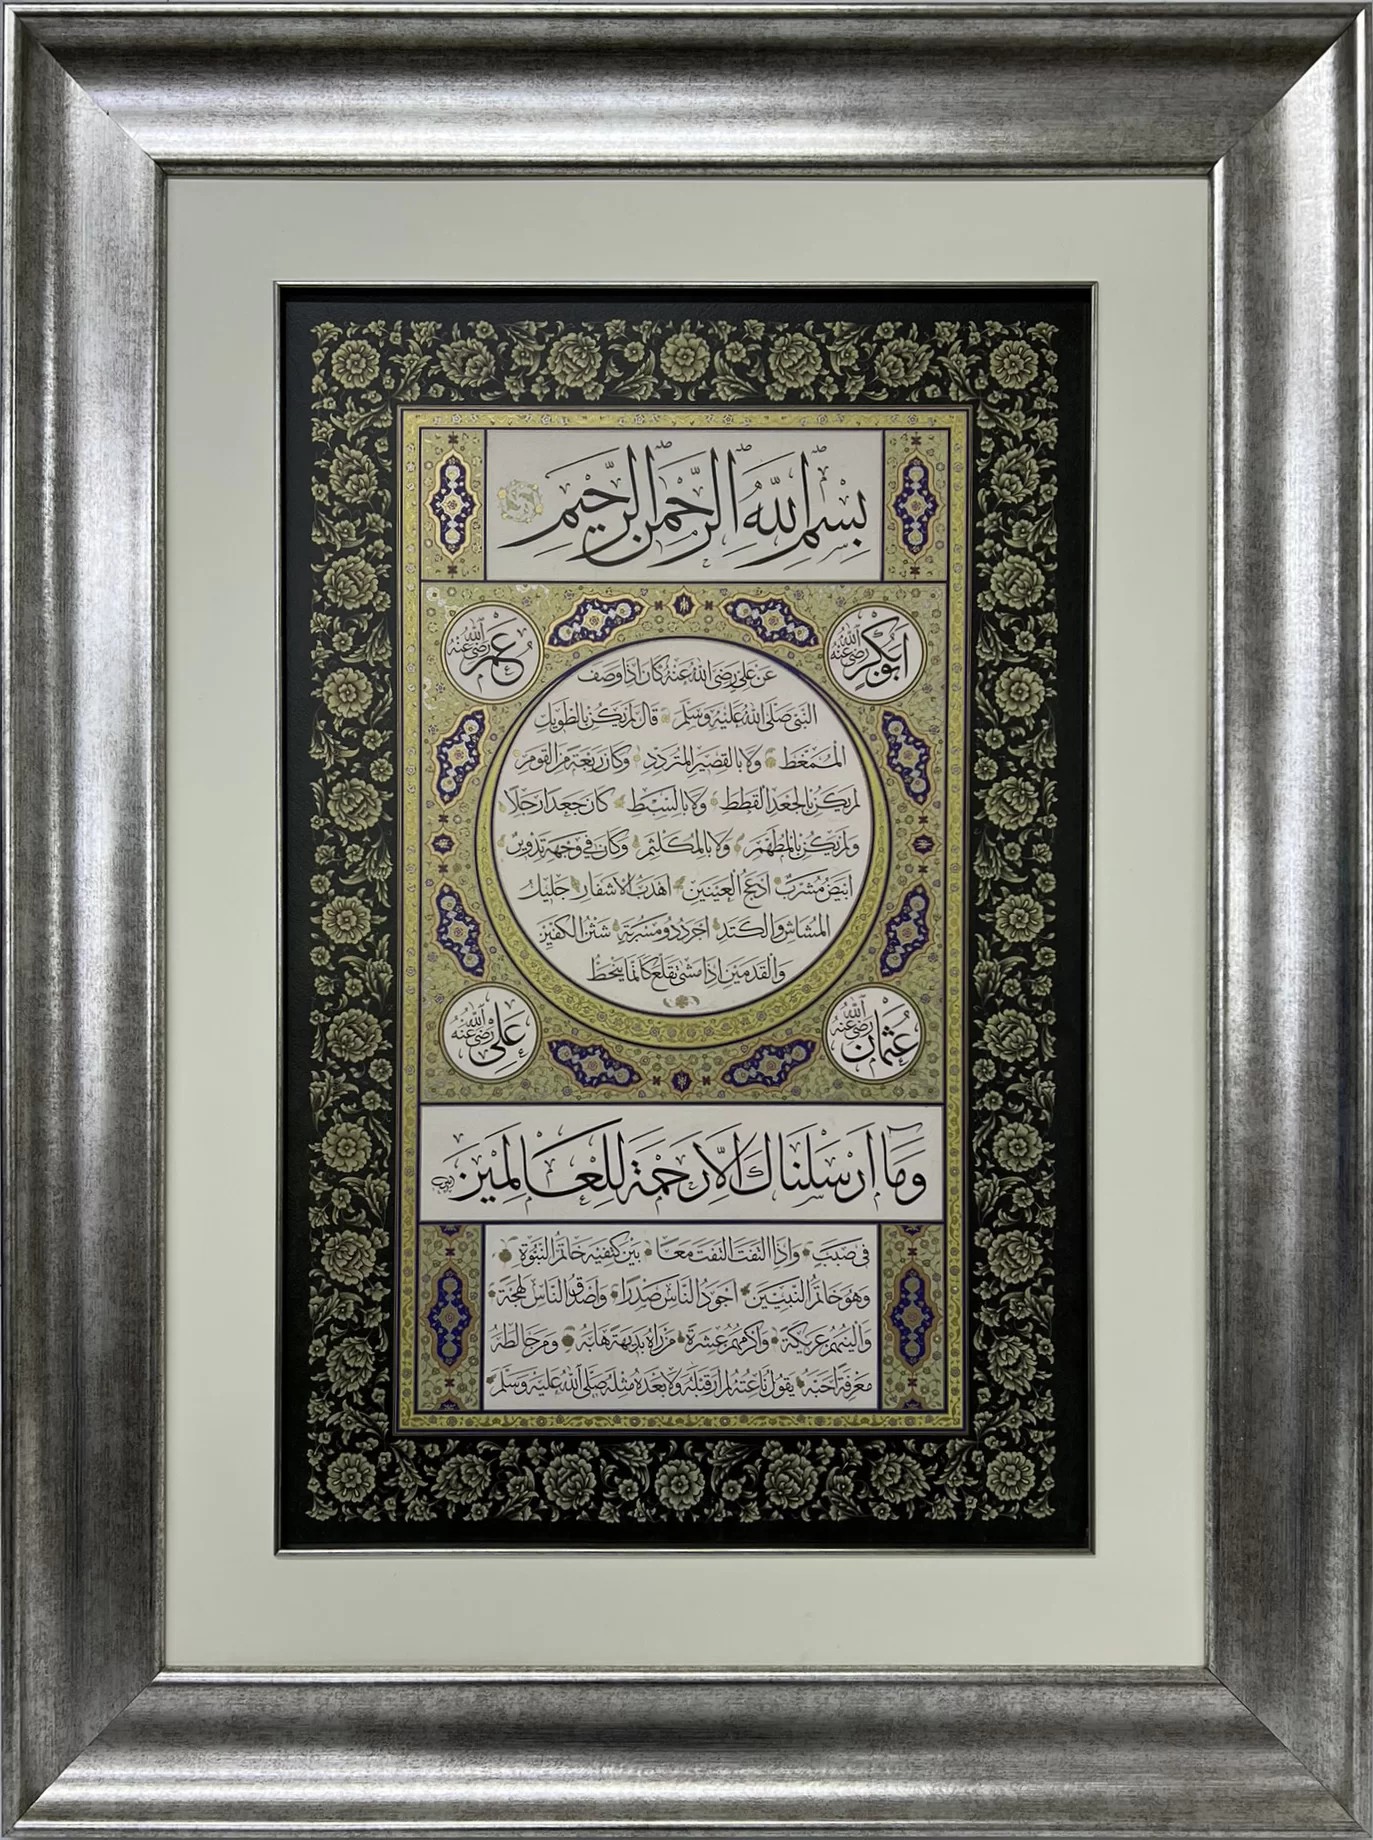 بسم الله الرحمن الرحيم
ابوبكر رضي الله عنه
عمر رضي الله عنه
عن علي رضي الله عنه كان اذا وصف
النبي صلى الله عليه وسلم قال لم يكن بالطويل
الممغط ولا بالقصير المتردد وكان ربعة من القوم
لم يكن بالجعد القطط ولا بالسبط كان جعدا رجلا
ولم يكن بالمطهم ولا بالمكلثم وكان في وجهه تدوير
ابيض مشرب ادعج العينين اهدب الاشفار جليل
المشاش والكتد اجرد ذو مسربة شثن الكفين
والقدمين اذا مشى تقلع كانما ينحط
عثمان رضي الله عنه
علي رضي الله عنه
وما ارسلناك الا رحمة للعالمين
في صبب واذا التفت التفت معا بين كتفيه خاتم النبوة
وهو خاتم النبيين اجود الناس صدرا واصدق الناس لهجة
والينهم عريكة واكرمهم عشرة من راه بديهة هابه ومن خالطه
معرفة احبه يقول ناعته لم ار قبله ولا بعده مثله صلى الله عليه وسلم